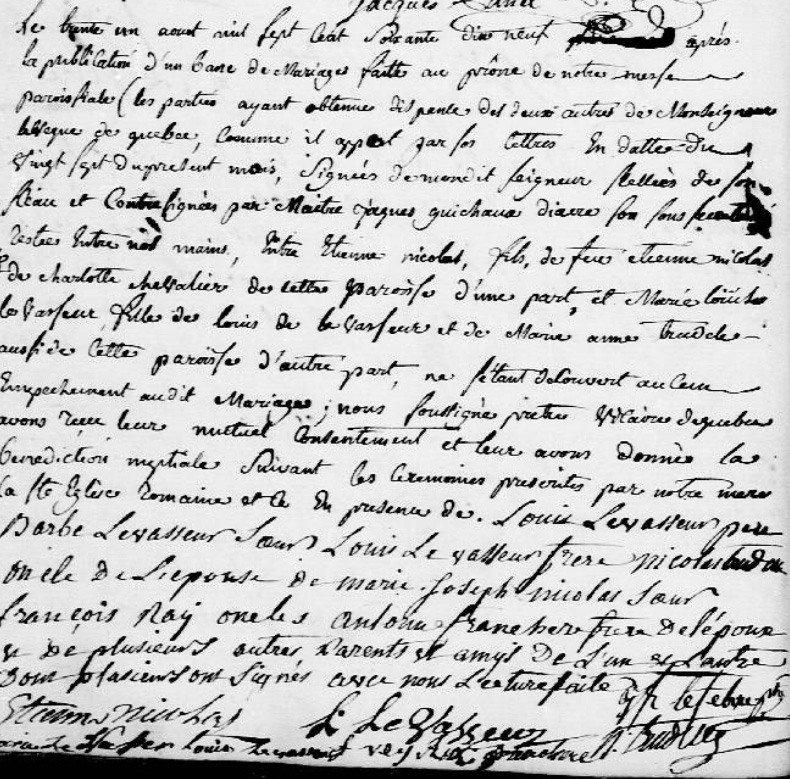 Jacques
Le trente un aout mil sept cent soixante dix neuf après
la publication d'un banc de Mariages faitte au prône de notre messe
paroissiale (les parties ayant obtenue dispense des deux autres de Monseigneur
leveque de quebec, Comme il appert par ses lettres En datte du
vingt sept du present mois, signées de mondit seigneur scellées de son
sceau et Contresignées par Maitre jaques guichaux diacre son sous
restées Entre nos mains, Entre Etienne nicolas, fils, de feu etienne nicolas
de charlotte chevalier de cette paroisse d'une part, et Marie louise
levasseur fille de louis de levasseur et de Marie anne trudele
aussi de Cette paroisse d'autre part, ne s'étant decouvert aucun
Empechement audit Mariage; nous soussigné prêtre Vicaire de quebec
avons reçu leur mutuel Consentement et leur avons donné la
benediction nuptiale suivant les Ceremonies prescrites par notre mere
la Ste Eglise romaine et ce En presence de. Louis Levasseur pere
Barbe Levasseur sœur Louis Le vasseur frere nicolas
oncle de Lepouse de marie joseph nicolas sœur
françois Raÿ oncles antoine franchere frere de lépoux
et de plusieurs autres Parents et amys De L'un et L'autre
Dont plusieurs ont signés avec nous Lecture faite lefebvre ptre
Etienne Nicolas L Le Vasseur
Louis Levasseur franchere